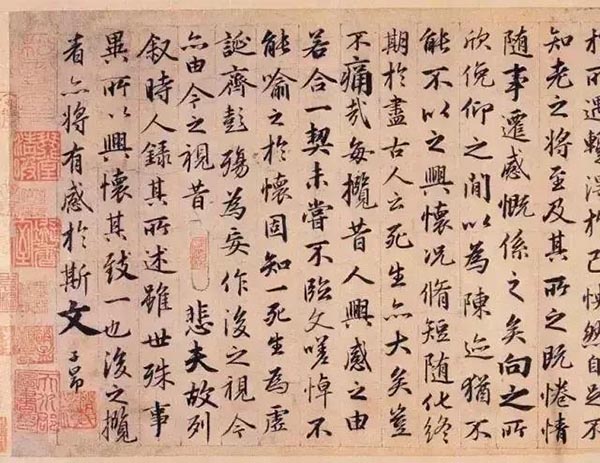 於所遇暫得於己快然自足不
知老之將至及其所之既惓情
随事遷感慨係之矣向之所
欣俛仰之間以為陳迹猶不
能不以之興懷况脩短随化終
期於盡古人云死生亦大矣豈
不痛哉每攬昔人興感之由
若合一契未嘗不臨文嗟悼不
能喻之於懷固知一死生為虛
誕齊彭殤為妄作後之視今
亦由今之視昔 悲夫故列
叙時人錄其所述雖世殊事
異所以興懷其致一也後之攬
者亦將有感於斯文 子昂